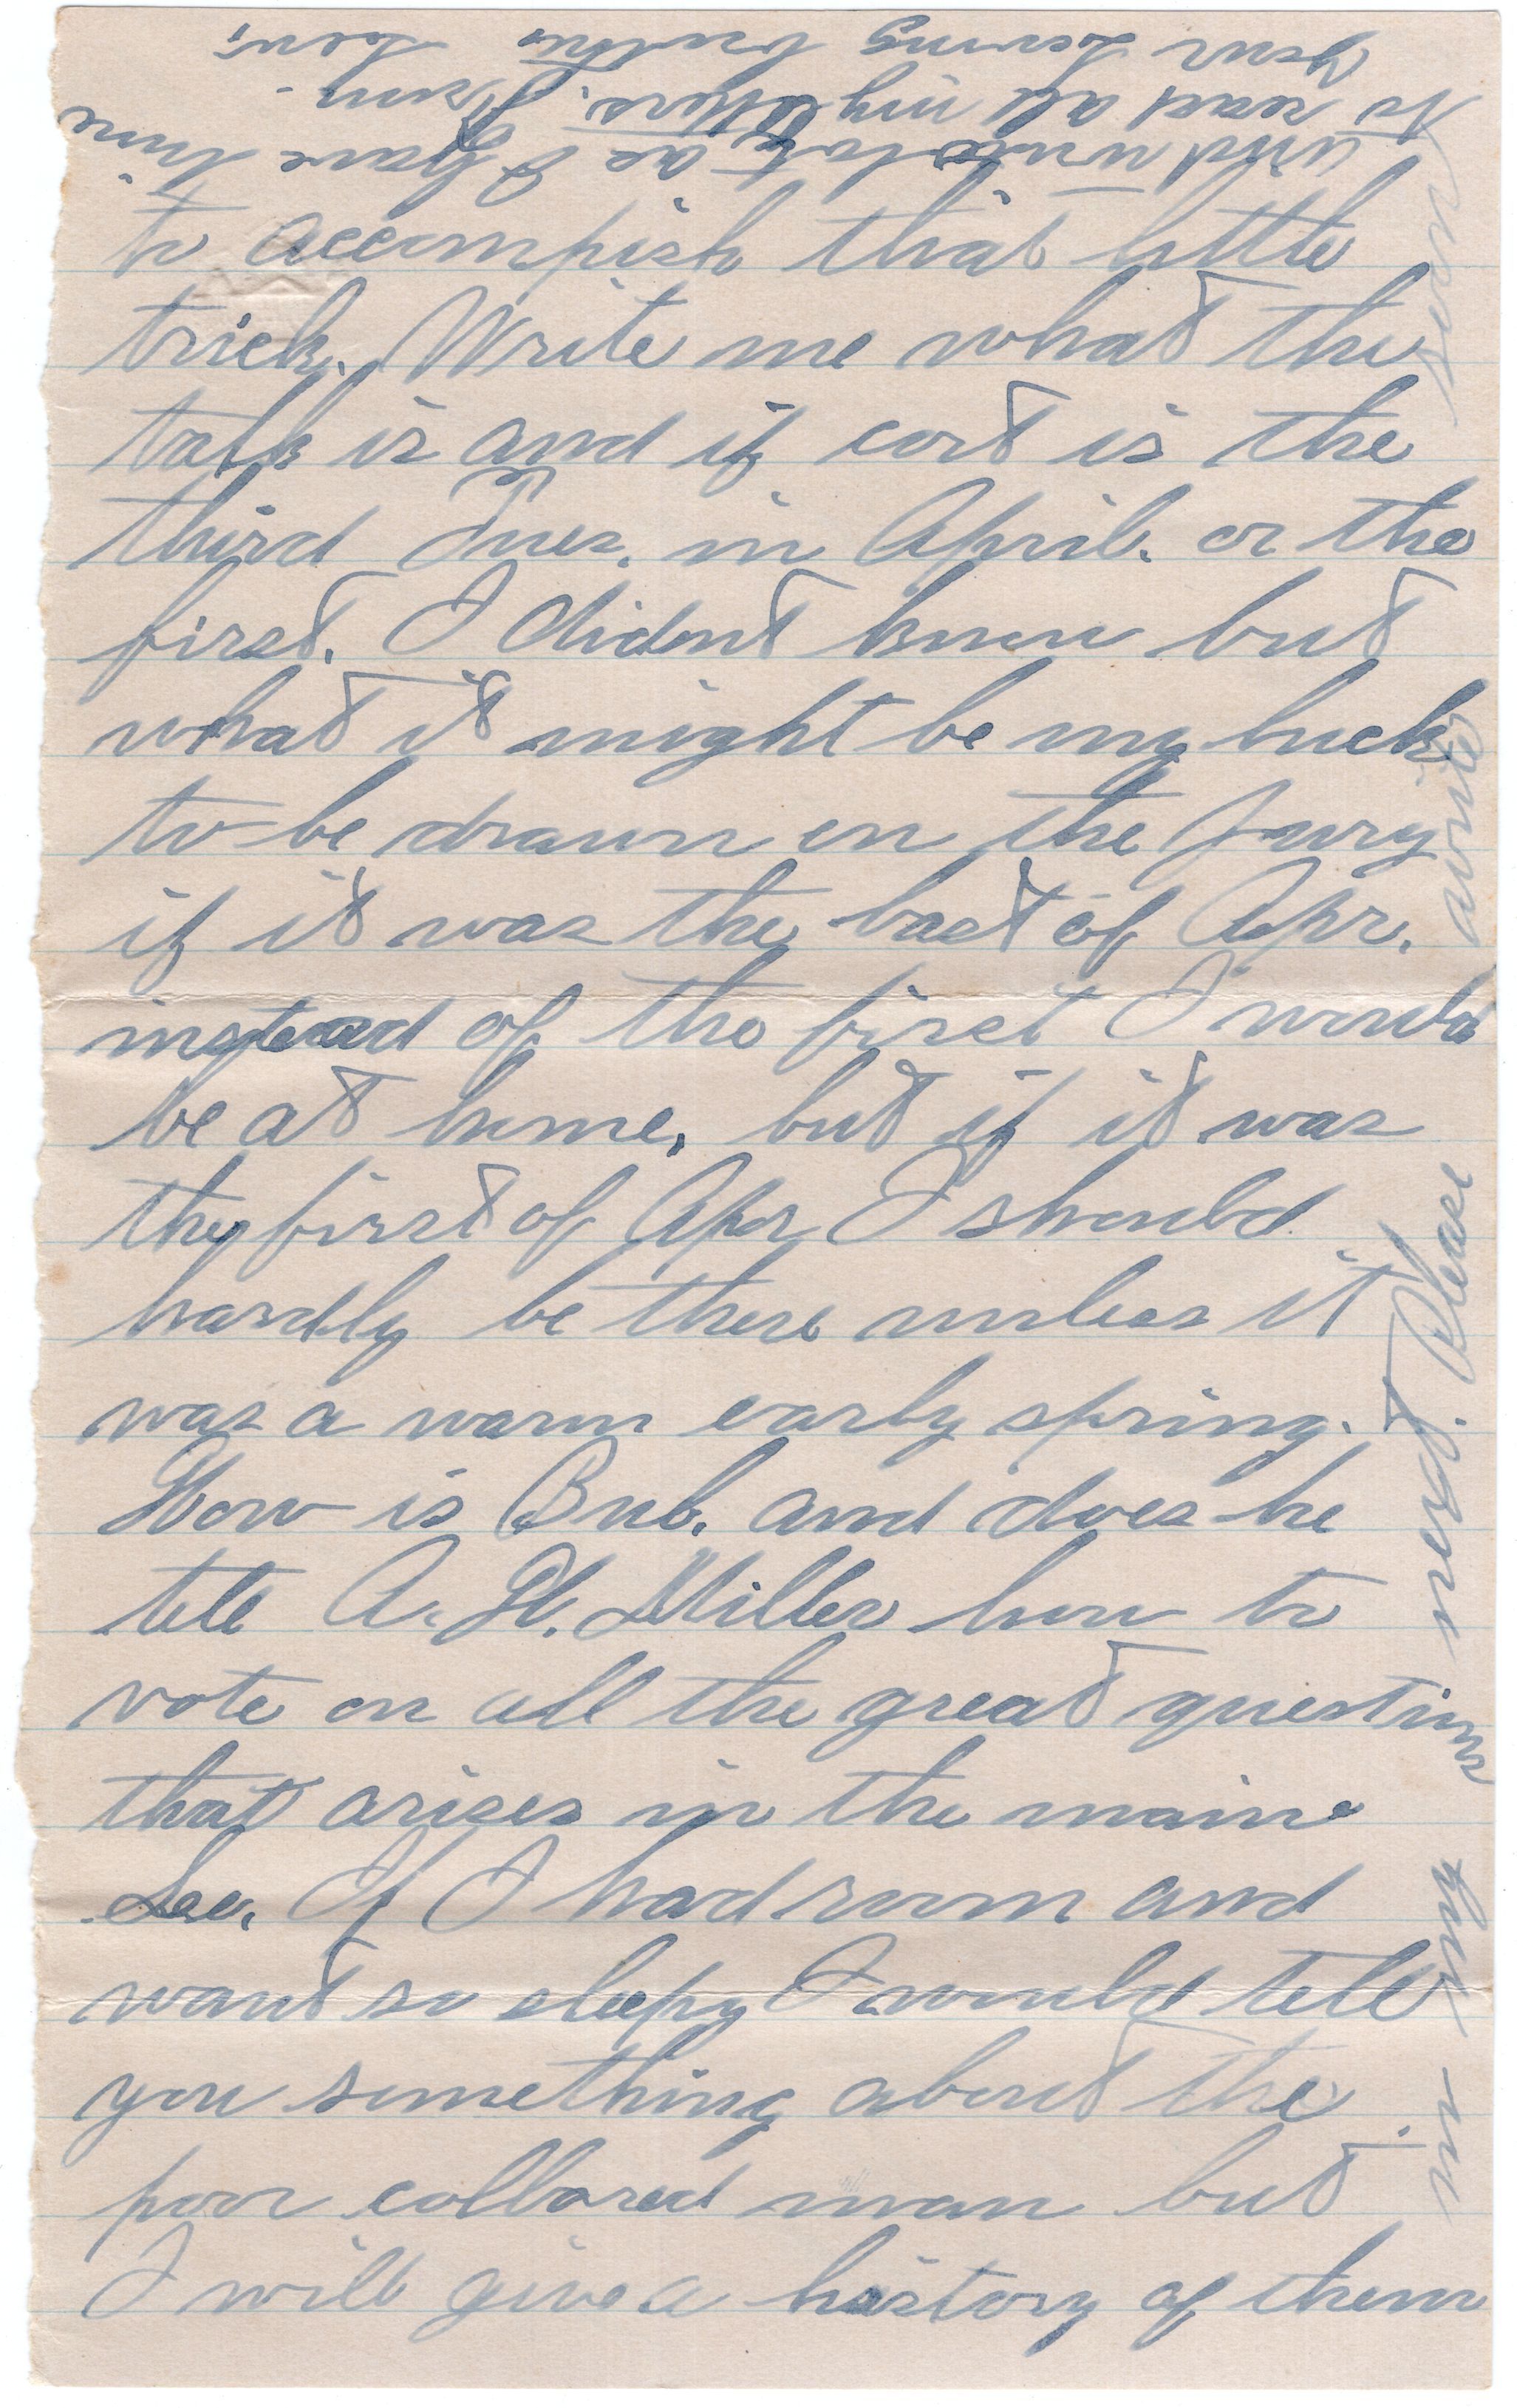 to accompish that little
trick. Write me what the
talk is and if cort is the
third Tues. in April. or the
first. I didont know but
what it might be my luck
to be drawn on the Jury
if it was the last of Apr.
instead of the first I would
be at home, but if it was
the first of Apr I should
hardly be there unless it
was a warm early spring.
How is Bub. and does he
tell A. H. Miller how to
vote on all the great questions
that arises in the maine
Lee. If I had room and
want so sleepy I would tell
you something about the
poor collored man but
I will give a history of them
in my next. Please write soon
and write lot as I have time
to read all my letters. From
Your Loving brother